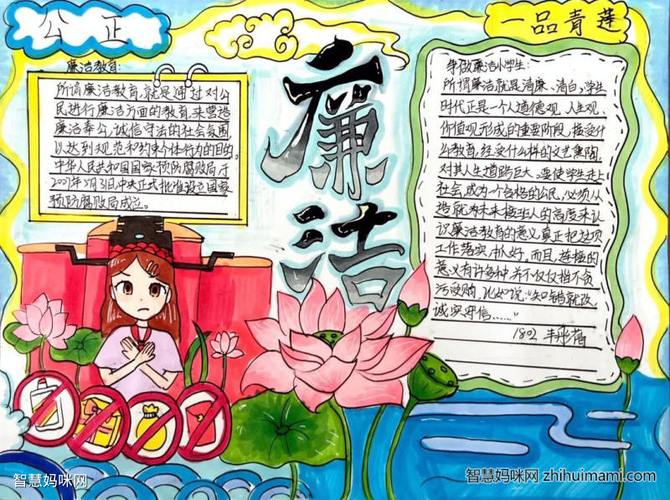 公正
一品青莲
廉洁
廉洁教育:
所谓廉洁教育,就是通过对公
民进行廉洁方面的教育,来营造
廉洁奉公,诚信守法的社会氛围,
以达到规范和约束个体行为的目的。
中华人民共和国国家预防腐败局于
2007年5月31日中央正式批准设立国家
预防腐败局成立。
争做廉洁小学生:
所谓廉洁就是清廉、清白,学生
时代正是一个人道德观、人生观、
价值观形成的重要阶段,接受什
么教育,经受什么样的文艺熏陶,
对其人生道路巨大,要使学生走上
社会,成为一个合格的公民,必须从
造就为未来接班人的高度来认
识廉洁教育的意义,真正把这项
工作落实,抓好,而且,廉洁的
意义有许多种,并不仅仅指不贪
污受贿,比如说:"知错就改,
诚实守信……"
1802
智慧妈咪网
智慧妈咪网 zhihuimami.com